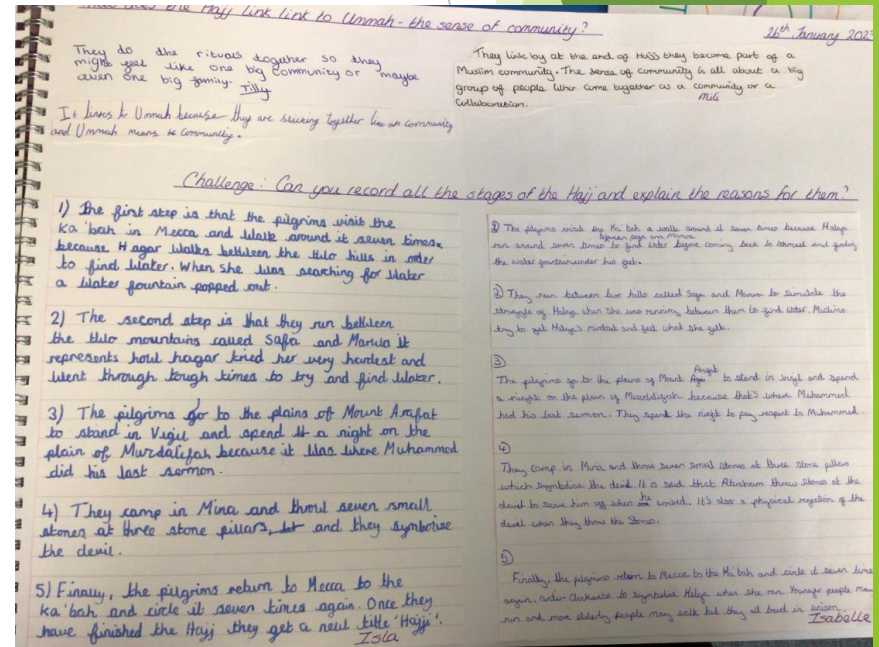 the Hajj link link to Ummah - the sense of community?
26th January 2023
They do the rituals together so they
might feel like one big community or maybe
even one big family. Tilly
They link by at the end of Hajj they become part of a
Muslim community. The sense of community is all about a big
group of people who come together as a community or a
collaboration.
Mili
It links to Ummah because they are sticking together like an community
and Ummah means to community.
Challenge: Can you record all the stages of the Hajj and explain the reasons for them?
1) The first step is that the pilgrims visit the
ka'bah in Mecca and walk around it seven times,
because Hagar walks between the two hills in order
to find water. When she was searching for water
a water fountain popped out.
2) The second step is that they run between
the two mountains called Safa and Marwa it
represents how hagar tried her very hardest and
went through tough times to try and find water.
3) The pilgrims go to the plains of Mount Arafat
to stand in Vigil and spend a night on the
plain of Muzdalifah because it was where Muhammed
did his last sermon.
4) They camp in Mina and throw seven small
stones at three stone pillars, and they symbolise
the devil.
5) Finally, the pilgrims return to Mecca to the
ka'bah and circle it seven times again. Once they
have finished the Hajj they get a new title 'Hajji'.
Isla
The pilgrims visit the Ka'bah a walk around it seven times because
between Safa and Marwa
ran around seven times to find water before coming back to Ishmael and finding
the water fountain under his feet.
2) They run between two hills called Safa and Marwa to simulate the
struggle of when she was running between them to find water. Muslims
try to get mindset and feel what she felt.
3)
Arafat
The pilgrims go to the plains of Mount to stand in vigil and spend
a night on the plain of Muzdalifah because that's where Muhammed
had his last sermon. They spend the night to pay respect to Muhammed.
4)
They camp in Mina and throw seven small stones at three stone pillars
which symbolise the devil. It is said that Abraham threw stones at the
devil to him off when he arrived. It's also a physical rejection of the
devil when they throw the stones.
5)
Finally, the pilgrims return to Mecca to the Ka'bah and circle it seven times
again, to symbolise when she ran. Younger people may
run and more elderly people may walk but they all
Isabelle